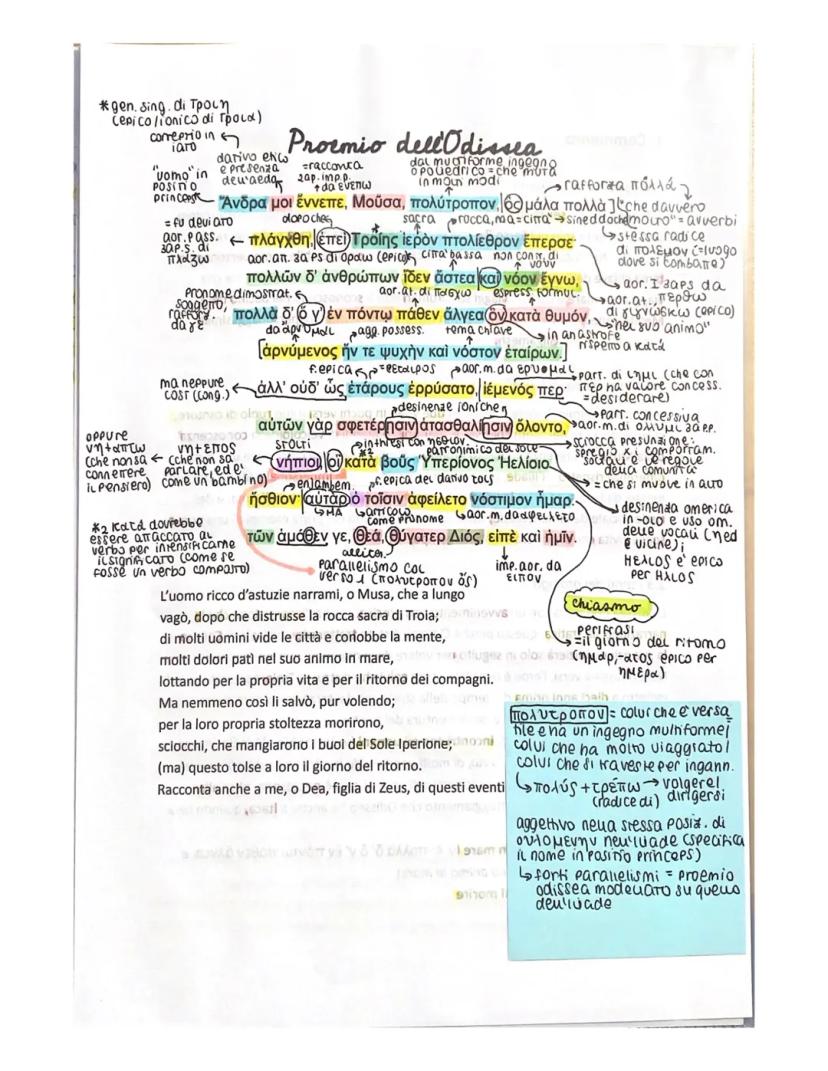 *gen. sing. di Τροίη
(epico/ionico di Τροία)
correptio in
iato
Proemio dell'Odissea
dativo etico
e presenza
dell'aeda
=racconta
2a p. imp. p.
da ενεπω
dal multiforme ingegno
o poliedrico = che muta
in molti modi
"uomo" in
positio
princeps
rafforza πολλά
Ἄνδρα μοι ἔννεπε, Μοῦσα, πολύτροπον, ὃς μάλα πολλὰ
"che davvero
molto" = avverbi
= fu deviato
aor. pass.
3a p.s. di
πλάζω
dopo che
sacra
rocca, ma = città → sineddoche
πλάγχθη, ἐπεὶ Τροίης ἱερὸν πτολίεθρον ἔπερσε·
stessa radice
di πόλεμον (=luogo
dove si combatte)
aor. att. 3a ps di οράω (epico)
città bassa
non contr. di
νουν
πολλῶν δ' ἀνθρώπων ἴδεν ἄστεα καὶ νόον ἔγνω,
aor. I 3a ps da
περθω
aor. at.
di γιγνώσκω (epico)
Pronome dimostrat.
soggetto,
rafforz.
da γε
aor. at. di πασχω
espress. formul.
πολλὰ δ' ὅ γ' ἐν πόντῳ πάθεν ἄλγεα ὃν κατὰ θυμόν,
"nel suo animo"
in anastrofe
rispetto a κατά
da αρνυμαι
agg. possess.
tema chiave
[ἀρνύμενος ἥν τε ψυχὴν καὶ νόστον ἑταίρων.]
f. epica
= εταιρος
aor. m. da ερυομαι
part. di ιημι (che con
περ ha valore concess.
= desiderare)
ma neppure
così (cong.)
ἀλλ' οὐδ' ὧς ἑτάρους ἐρρύσατο, ἱέμενός περ·
Part. concessiva
desinenze ioniche
αὐτῶν γὰρ σφετέρῃσιν ἀτασθαλίῃσιν ὄλοντο,
aor. m. di ολλυμι 3a p.p.
sciocca presunzione:
spregio x i comportam.
sociali e le regole
della comunità
oppure
νη + απτω
(che non sa
connettere
il pensiero)
νη + επος
(che non sa
parlare, ed è
come un bambino)
stolti
*2
in tmesi con ησθιον
patronimico del sole
νήπιοι, οἳ κατὰ βοῦς Ὑπερίονος Ἠελίοιο
= che si muove in alto
enjambem.
f. epica del dativo τοις
ἤσθιον· αὐτὰρ ὁ τοῖσιν ἀφείλετο νόστιμον ἦμαρ.
=MA
articolo
come pronome
aor. m. da αφειλετο
desinenza omerica
in -οιο e uso om.
delle vocali (ηed
ε vicine);
Ηέλιος è epico
per Ηλιος
*2 κατά dovrebbe
essere attaccato al
verbo per intensificarne
il significato (come se
fosse un verbo composto)
τῶν ἁμόθεν γε, θεά, θύγατερ Διός, εἰπὲ καὶ ἡμῖν.
allitter.
Parallelismo col
verso 1 (πολυτροπον ὅς)
imp. aor. da
ειπον
L'uomo ricco d'astuzie narrami, o Musa, che a lungo
vagò, dopo che distrusse la rocca sacra di Troia;
di molti uomini vide le città e conobbe la mente,
molti dolori patì nel suo animo in mare,
lottando per la propria vita e per il ritorno dei compagni.
Ma nemmeno così li salvò, pur volendo;
per la loro propria stoltezza morirono,
sciocchi, che mangiarono i buoi del Sole Iperione;
(ma) questo tolse a loro il giorno del ritorno.
Racconta anche a me, o Dea, figlia di Zeus, di questi eventi
chiasmo
perifrasi
=il giorno del ritorno
(ημαρ, -ατος epico per
ημερα)
πολυτροπον = colui che è versa_
tile e ha un ingegno multiforme/
colui che ha molto viaggiato/
colui che si traveste per ingann.
↳ πολύς + τρέπω → volgere/
(radice di) dirigersi
aggettivo nella stessa posiz. di
ουλομενην nell'iliade (specifica
il nome in positio princeps)
↳ forti parallelismi = proemio
odissea modellato su quello
dell'iliade